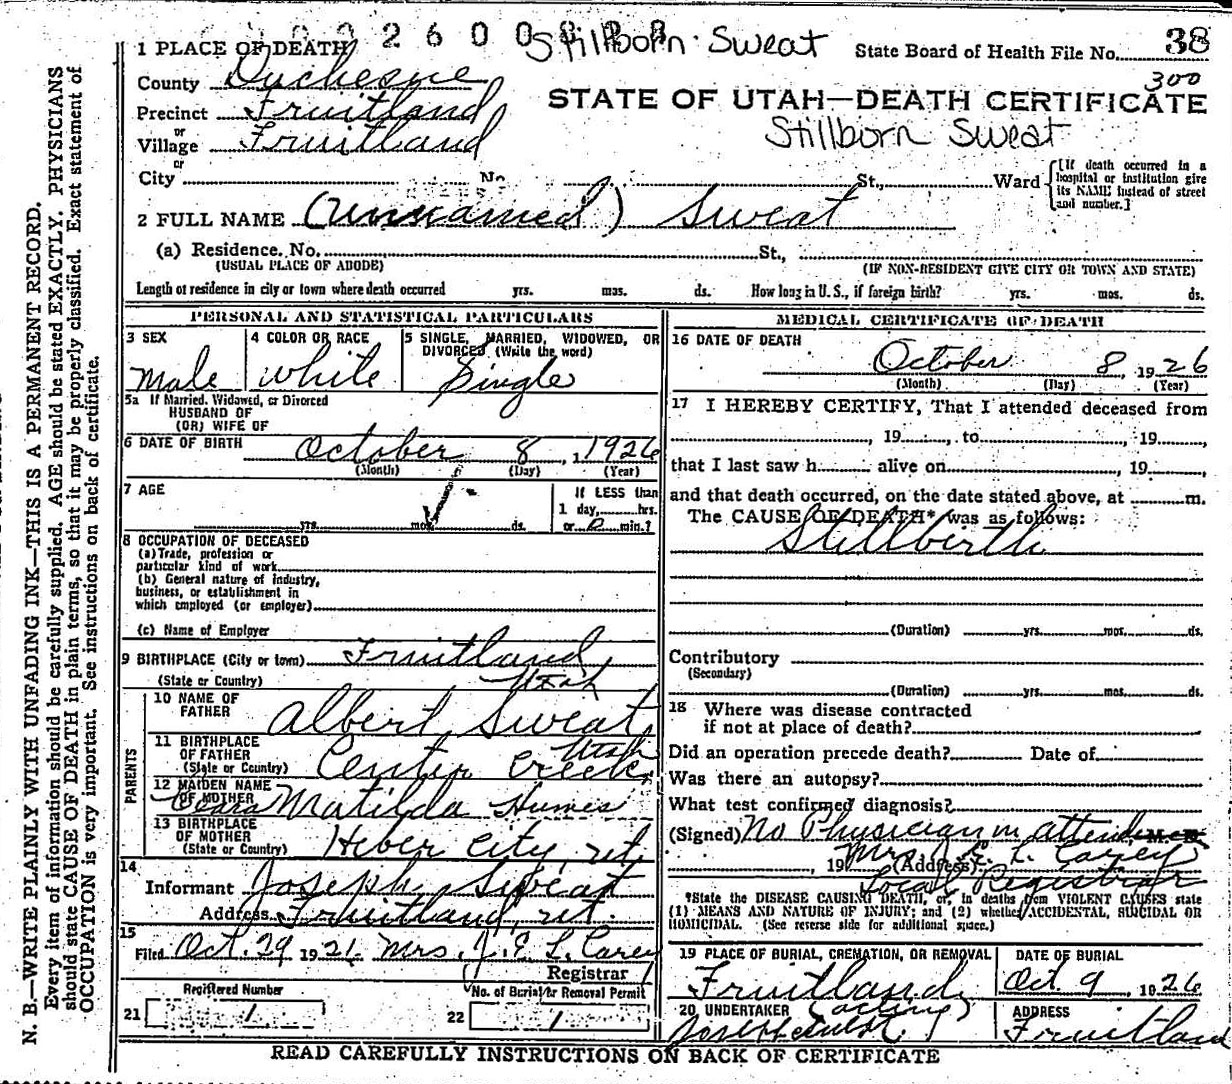 Stillborn Sweat State Board of Health File No. 38
300
1 PLACE OF DEATH
County Duchesne
STATE OF UTAH—DEATH CERTIFICATE
Precinct Fruitland
Stillborn Sweat
or
Village Fruitland
or
City No. St., Ward
[If death occurred in a hospital or institution give its NAME instead of street and number.]
2 FULL NAME (unnamed) Sweat
(a) Residence. No. St.,
(USUAL PLACE OF ABODE) (IF NON-RESIDENT GIVE CITY OR TOWN AND STATE)
Length of residence in city or town where death occurred yrs. mos. ds. How long in U. S., if foreign birth? yrs. mos. ds.
PERSONAL AND STATISTICAL PARTICULARS
3 SEX
Male
4 COLOR OR RACE
White
5 SINGLE, MARRIED, WIDOWED, OR
DIVORCED (Write the word)
Single
5a If Married, Widowed, or Divorced
HUSBAND OF
(OR) WIFE OF
6 DATE OF BIRTH October 8, 1926
(Month) (Day) (Year)
7 AGE yrs. mos. ds.
If LESS than
1 day, hrs.
or 0 min.?
8 OCCUPATION OF DECEASED
(a) Trade, profession or
particular kind of work
(b) General nature of industry,
business, or establishment in
which employed (or employer)
(c) Name of Employer
9 BIRTHPLACE (City or town) Fruitland,
(State or Country) Utah
PARENTS
10 NAME OF
FATHER Albert Sweat
11 BIRTHPLACE
OF FATHER
(State or Country) Center Creek, Utah
12 MAIDEN NAME
OF MOTHER Matilda Humes
13 BIRTHPLACE
OF MOTHER
(State or Country) Heber City, ut.
14
Informant Joseph Sweat
Address Fruitland, ut.
15
Filed Oct. 29 1926 Mrs. J. E. L. Carey
Registrar
Registered Number
21 1
No. of Burial or Removal Permit
22 1
MEDICAL CERTIFICATE OF DEATH
16 DATE OF DEATH
October 8, 1926
(Month) (Day) (Year)
17 I HEREBY CERTIFY, That I attended deceased from
, 19 , to , 19 ,
that I last saw h alive on , 19 ,
and that death occurred, on the date stated above, at m.
The CAUSE OF DEATH* was as follows:
Stillbirth
(Duration) yrs. mos. ds.
Contributory
(Secondary)
(Duration) yrs. mos. ds.
18 Where was disease contracted
if not at place of death?
Did an operation precede death? Date of
Was there an autopsy?
What test confirmed diagnosis?
(Signed) No Physician in attendance M. D.
, 19 (Address) Mrs. J. E. L. Carey
Local Registrar
*State the DISEASE CAUSING DEATH, or, in deaths from VIOLENT CAUSES state
(1) MEANS AND NATURE OF INJURY; and (2) whether ACCIDENTAL, SUICIDAL OR
HOMICIDAL. (See reverse side for additional space.)
19 PLACE OF BURIAL, CREMATION, OR REMOVAL
Fruitland
DATE OF BURIAL
Oct 9, 1926
20 UNDERTAKER (acting)
Joseph Sweat
ADDRESS
Fruitland
READ CAREFULLY INSTRUCTIONS ON BACK OF CERTIFICATE
N. B.—WRITE PLAINLY WITH UNFADING INK—THIS IS A PERMANENT RECORD.
Every item of information should be carefully supplied. AGE should be stated EXACTLY. PHYSICIANS
should state CAUSE OF DEATH in plain terms, so that it may be properly classified. Exact statement of
OCCUPATION is very important. See instructions on back of certificate.